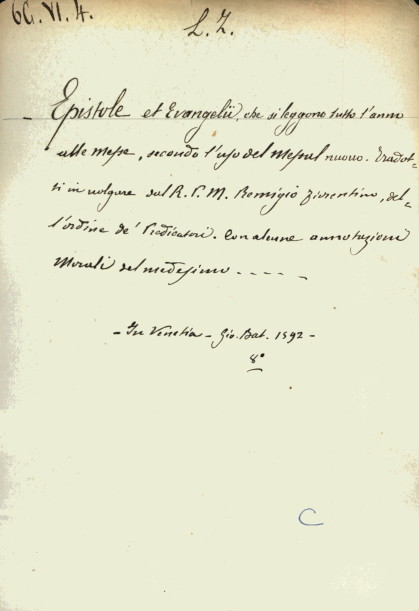 60.VI.4.
L. Z.
Epistole et Evangelii, che si leggono tutto l'anno
alle Messe, secondo l'uso del Messal nuovo. Tradot=
ti in volgare dal R. P. M. Remigio Fiorentino, del=
l'ordine de' Predicatori. Con alcune annotazioni
Morali del medesimo - - - -
- In Venetia - Gio. Bat. 1592 -
8°
C